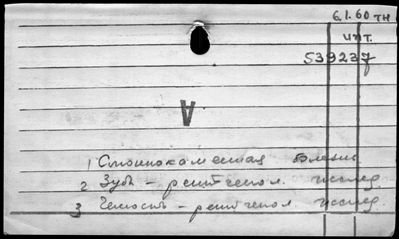 6.1.60 тн
цит.
539237
A
1 Слюннокаменная болезнь
2 Зубы - рентгенол. исслед.
3 Челюсть - рентгенол исслед.